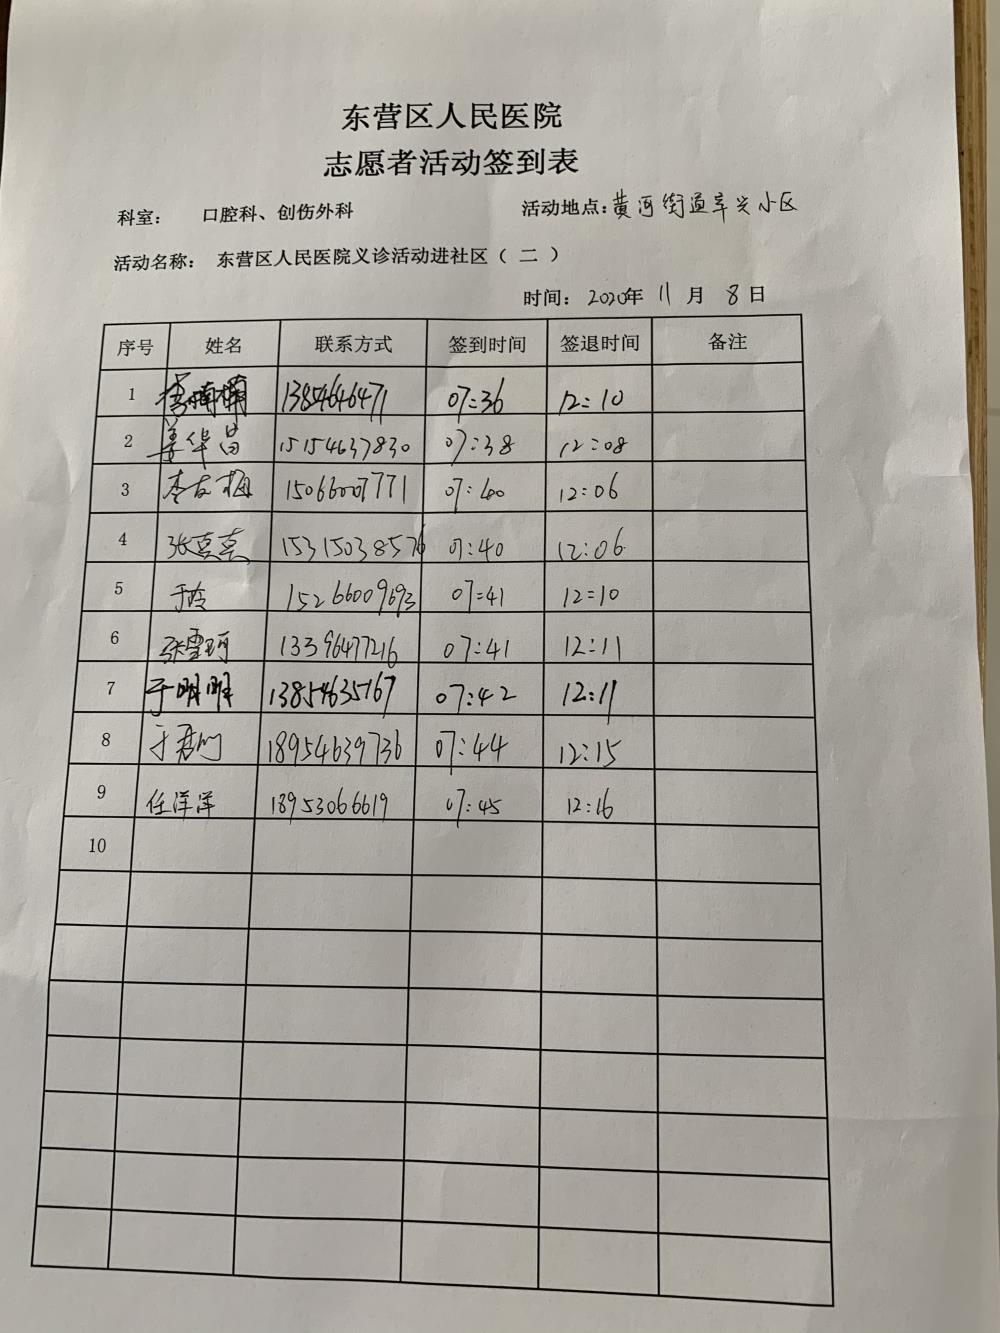 东营区人民医院
志愿者活动签到表
科室： 口腔科、创伤外科 活动地点：黄河街道辛兴小区
活动名称： 东营区人民医院义诊活动进社区（ 二 ）
时间： 2020年 11 月 8 日
序号 姓名 联系方式 签到时间 签退时间 备注
1 李楠楠 13854646471 07:36 12:10
2 姜华昌 15154637830 07:38 12:08
3 李友梅 15066007771 07:40 12:06
4 张真真 15315038576 07:40 12:06
5 于玲 15266009693 07:41 12:10
6 张雪珂 13396477216 07:41 12:11
7 于明明 13854635167 07:42 12:11
8 于 18954639736 07:44 12:15
9 任洋洋 18953066619 07:45 12:16
10